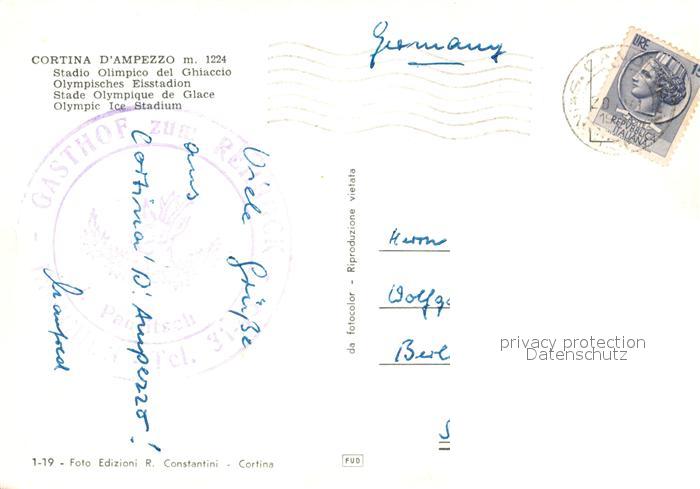 CORTINA D'AMPEZZO m. 1224
Stadio Olimpico del Ghiaccio
Olympisches Eisstadion
Stade Olympique de Glace
Olympic Ice Stadium
Germany
LIRE
REPVBBLICA
ITALIANA
GASTHOF zum
Tel.
Viele Grüße
aus
Cortina D'Ampezzo!
Manfred
da fotocolor - Riproduzione vietata
Herrn
Wolfg
Berl
S
privacy protection
Datenschutz
1-19 - Foto Edizioni R. Constantini - Cortina
FUD